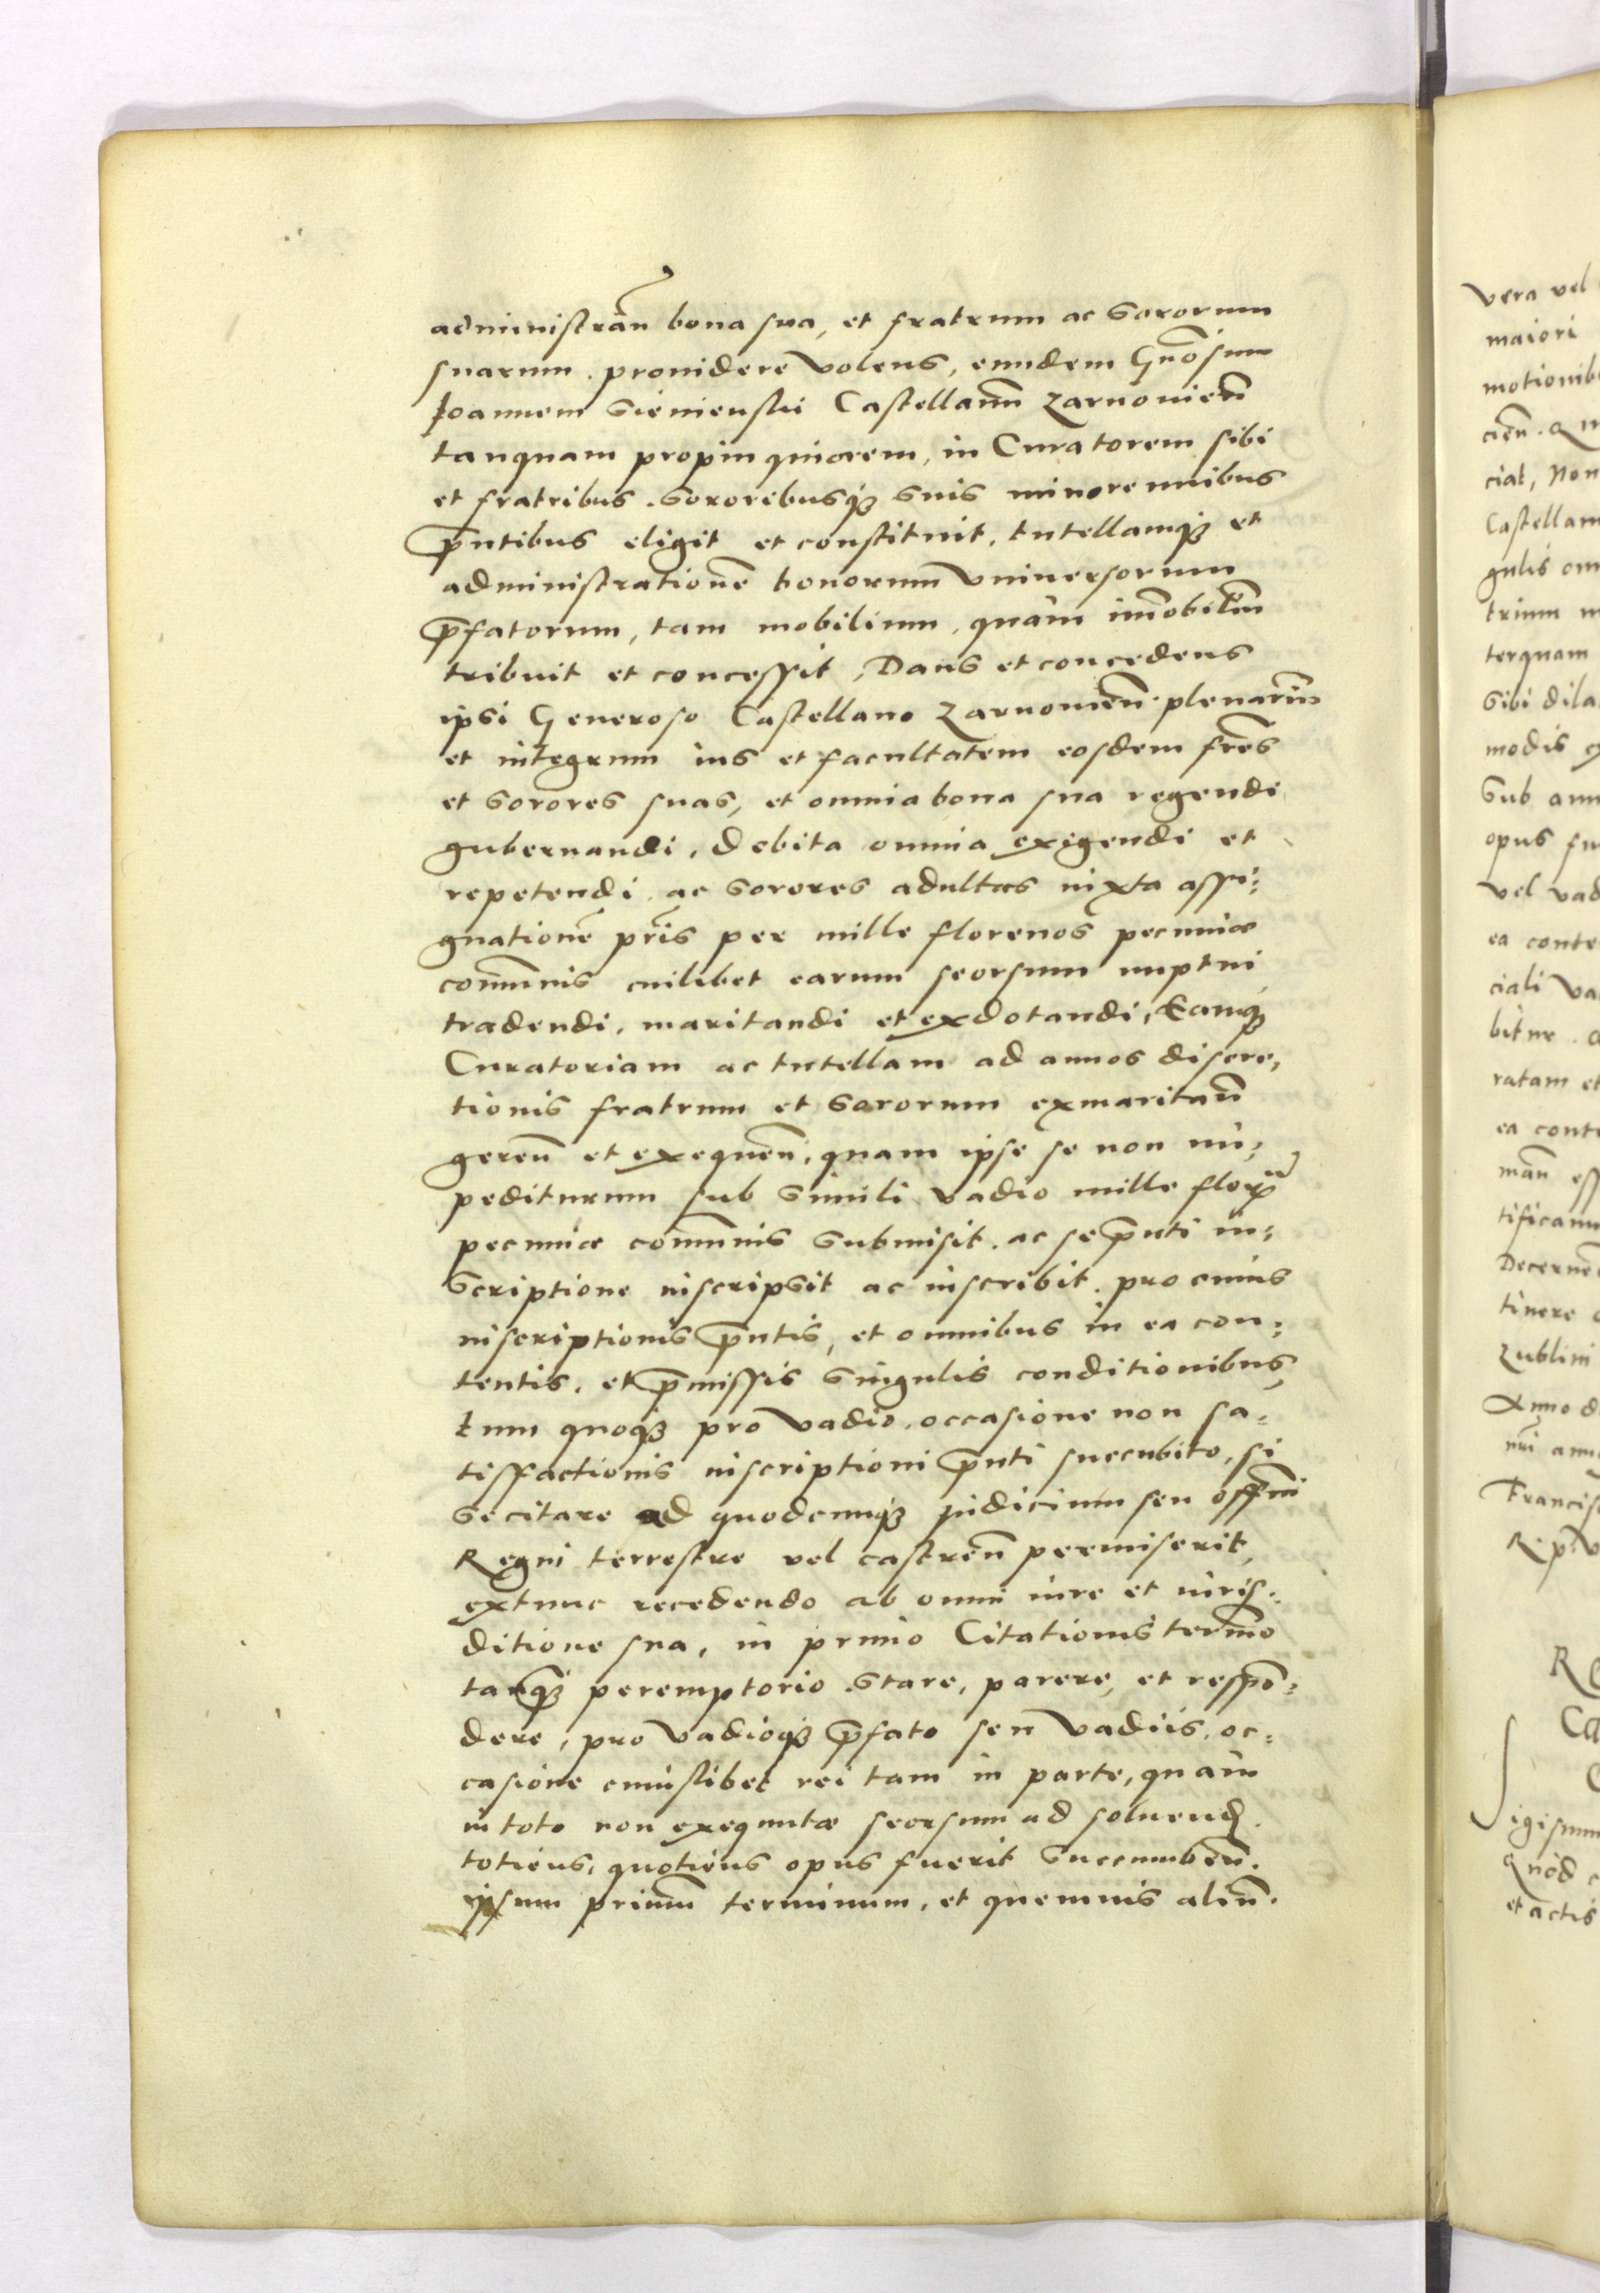 administrãn bona sua, et fratrum ac Sororum
suarum. prouidere volens, eundem Gnõsum
Joannem Sienienski Castellanũ Zarnouieñ
tanquam propinquiorem, in Curatorem sibi
et fratribus. Sororibusq3 Suis minorennibus
p̃ntibus eligit et constituit. tutellamq3 et
administrationẽ bonorum vniuersorum
p̃fatorum, tam mobilium, quàm im̃obiliũ
tribuit et concessit, Dans et concedens
ipsi Generoso Castellano Zarnouieñ. plenariũ
et integrum ius et facultatem eosdem frẽs
et Sorores suas, et omnia bona sua regendi
gubernandi, Debita omnia exigendi et
repetendi. ac Sorores adultas iuxta assi:
gnationẽ pr̃is per mille florenos pecuniæ
com̃unis cuilibet earum seorsum nuptui
tradendi, maritandi et exdotandi, Eamq3
Curatoriam ac tutellam ad annos discre,
tionis fratrum et Sororum exmaritañ
gereñ et exequeñ, quam ipse se non im:
pediturum sub Simili vadio mille florꝝ
pecuniæ com̃unis Submisit. ac se p̃nti in:
Scriptione inscripsit ac inscribit. pro cuius
inscriptionis p̃ntis, et omnibus in ea con:
tentis, et p̃missis Singulis conditionibus,
tum quoq3 pro vadio, occasione non sa:
tisfactionis inscriptioni p̃nti succubito, si
Se citare ad quodcunq3 judicium seu offm̃
Regni terrestre vel castreñ permiserit,
extunc recedendo ab omni iure et iuris:
ditione sua, in primo Citationis term̃o
tanq̃3 peremptorio Stare, parere, et respõ:
dere, pro vadioq3 p̃fato seu vadiis, oc:
casione cuiuslibet rei tam in parte, quàm
in toto non exequutæ seorsum ad soluend.
totiens, quotiens opus fuerit Succumbeñ.
ipsum primũ terminum, et quemuis aliũ.
vera vel
maiori
motionib
cieñ. Q
ciat, Non
Castellan
gulis om
trium
terquam
Sibi dila
modis
Sub ann
opus fu
vel vad
ea conte
ciali va
bitur.
ratam et
ea conte
mañ ess
tificamu
Decerne
tinere
Lublini
Anno d
nri anno
Francisc
R. p. v
R
Ca
igismun
quod
et actis